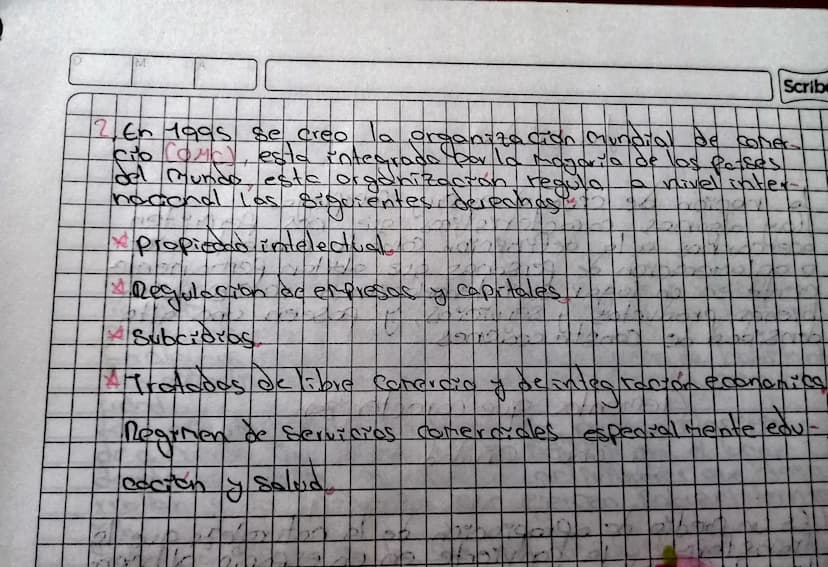 D M A
Scribe
2. En 1995 se creo la organización mundial de comer-
cio (OMC), esta integrada por la mayoria de los paises
del mundo, esta organización regula a nivel inter-
nacional los siguientes derechos:
* propiedad intelectual.
* Regulacion de empresas y capitales.
* Subcidios.
* Tratados de libre comercio y de integración economica
Regimen de servicios comerciales especialmente edu-
cación y salud.